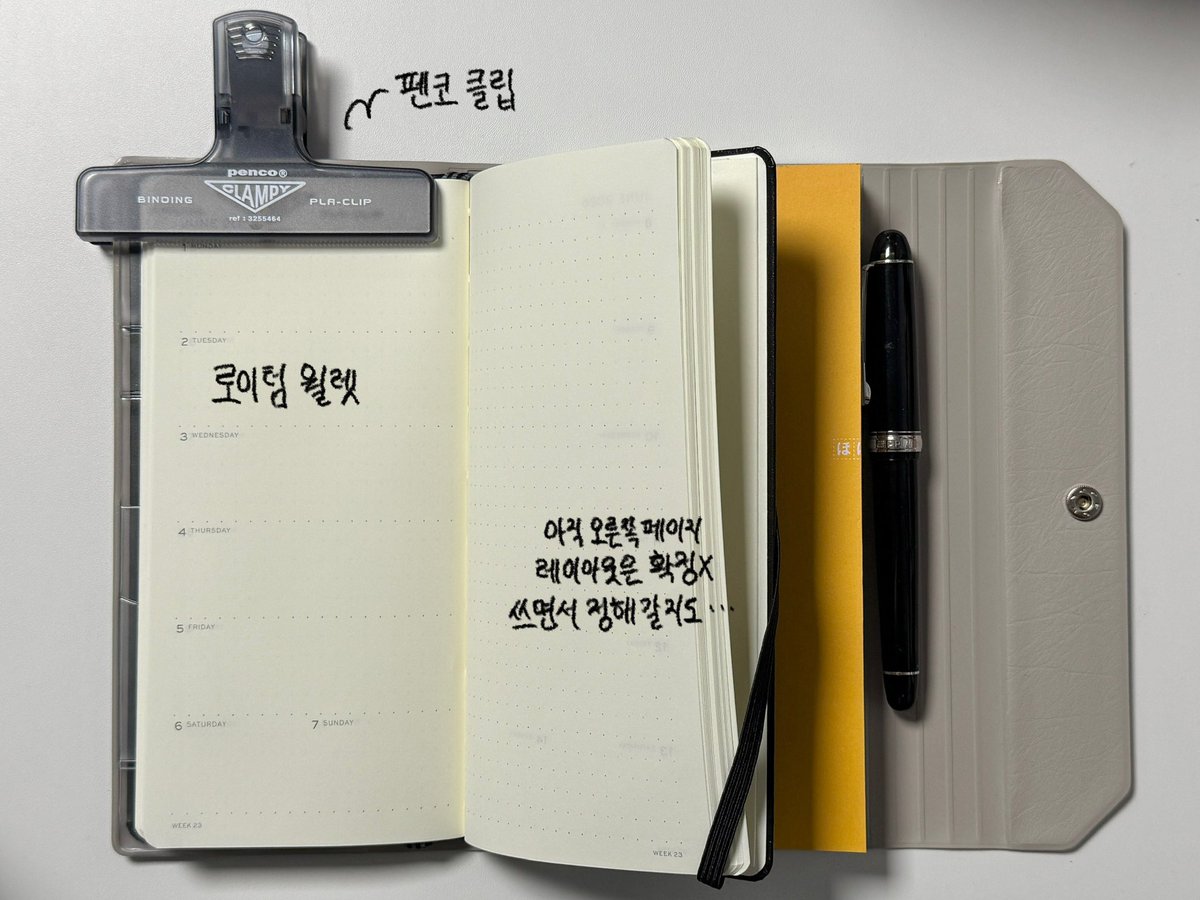 펜코 클립
penco®
CLAMPY
BINDING
PLA-CLIP
ref : 3255464
1 MONDAY
2 TUESDAY
로이텀 윌렛
3 WEDNESDAY
4 THURSDAY
5 FRIDAY
6 SATURDAY
7 SUNDAY
WEEK 23
아직 오른쪽 페이지
레이아웃은 확정X
쓰면서 정해 갈지도...
WEEK 23
ほ